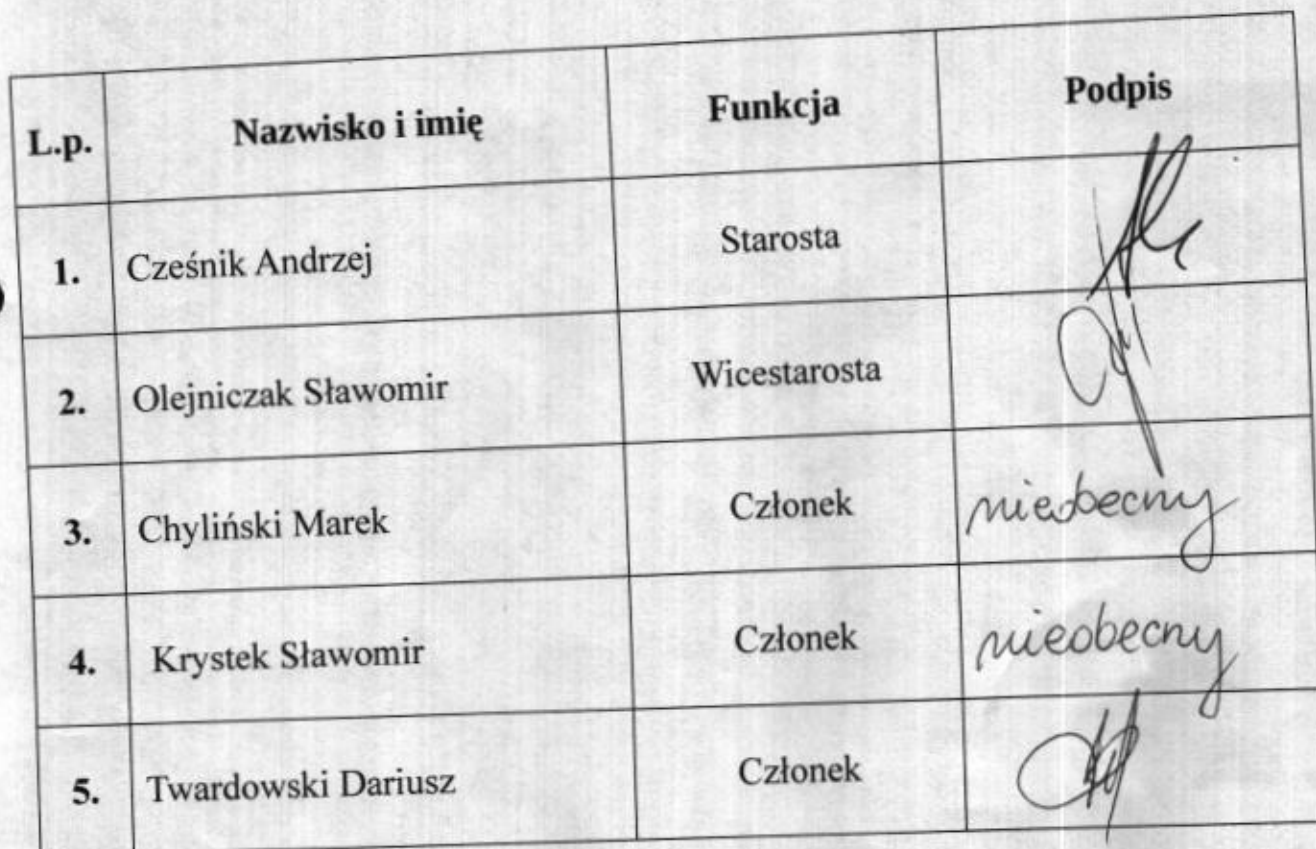 L.p. Nazwisko i imię Funkcja Podpis
1. Cześnik Andrzej Starosta
2. Olejniczak Sławomir Wicestarosta
3. Chyliński Marek Członek nieobecny
4. Krystek Sławomir Członek nieobecny
5. Twardowski Dariusz Członek